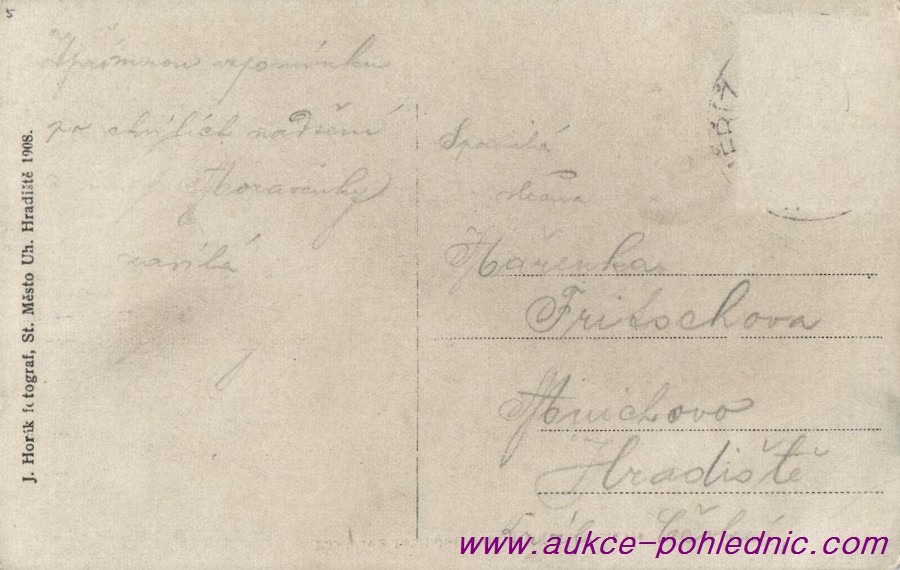 5
Upřímnou vzpomínku
po chvílích nadšení
Moravěnky
zasílá
J. Horák fotograf, St. Město Uh. Hradiště 1908.
Spanilá
slečna
Mařenka
Fritschova
Mnichovo
Hradiště
www.aukce-pohlednic.com